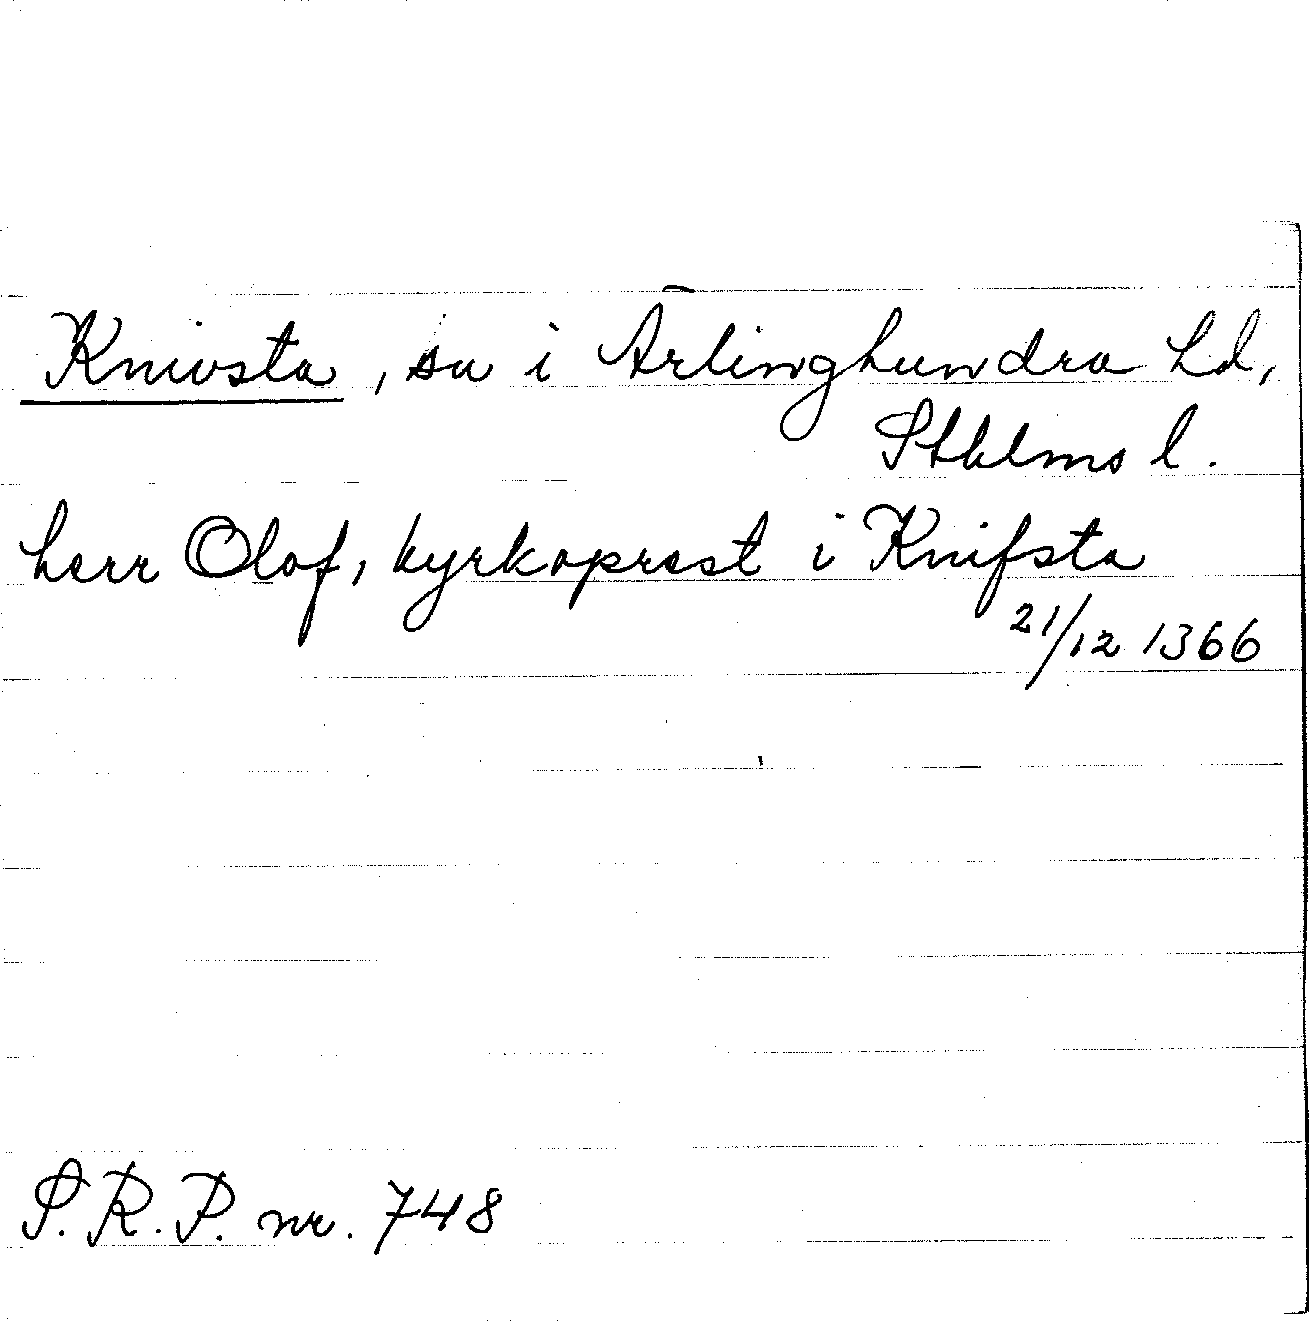 Knivsta, sn i Ärlinghundra hd,
Sthlms l.
herr Olof, kyrkoprest i Knifsta
21/12 1366
S. R. P. nr. 748